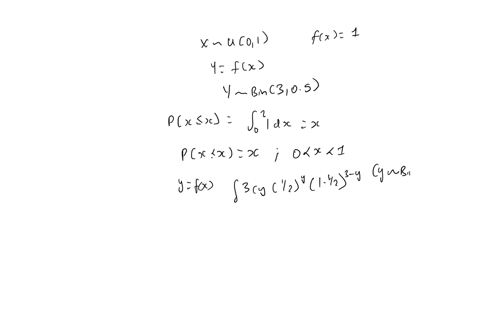 x ~ u(0,1) f(x) = 1
Y = f(x)
Y ~ Bin(3, 0.5)
P(x ≤ x) = ∫₀² 1 dx = x
P(x ≤ x) = x ; 0 < x < 1
y = f(x) ∫ 3Cy (1/2)^y (1-1/2)^3-y (y ~ Bi